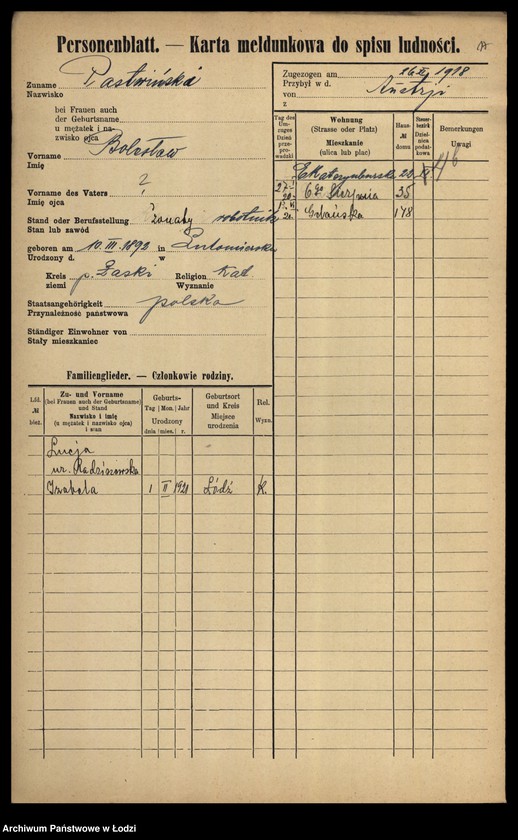 Personenblatt. — Karta meldunkowa do spisu ludności.
Zuname
Nazwisko
Pastwiński
bei Frauen auch
der Geburtsname
u mężatek i na-
zwisko ojca
Vorname Bolesław
Imię
Vorname des Vaters
Imię ojca
Stand oder Berufsstellung żonaty robotnik
Stan lub zawód
geboren am 10. III. 1892 in Lutomiersku
Urodzony d. w
Kreis p. Łaski Religion kat
ziemi Wyznanie
Staatsangehörigkeit polska
Przynależność państwowa
Ständiger Einwohner von
Stały mieszkaniec
Zugezogen am 1918
Przybył w d.
von Austrji
z
Tag des Um-zuges Dzień prze-prowadzki
Wohnung
(Strasse oder Platz)
Mieszkanie
(ulica lub plac)
Haus-
№
domu
Bemerkungen
Uwagi
6go Sierpnia 35
Gdańska 178
Familienglieder. — Członkowie rodziny.
Lfd.
№
bież.
Zu- und Vorname
(bei Frauen auch der Geburtsname)
und Stand
Nazwisko i imię
(u mężatek i nazwisko ojca)
i stan
Geburts-
Tag Mon. Jahr
Urodzony
dnia mies. r.
Geburtsort
und Kreis
Miejsce
urodzenia
Rel.
Wyzn.
Łucja
ur. Radziszowska
Izabela 1 II 1921 Łódź K.
Archiwum Państwowe w Łodzi